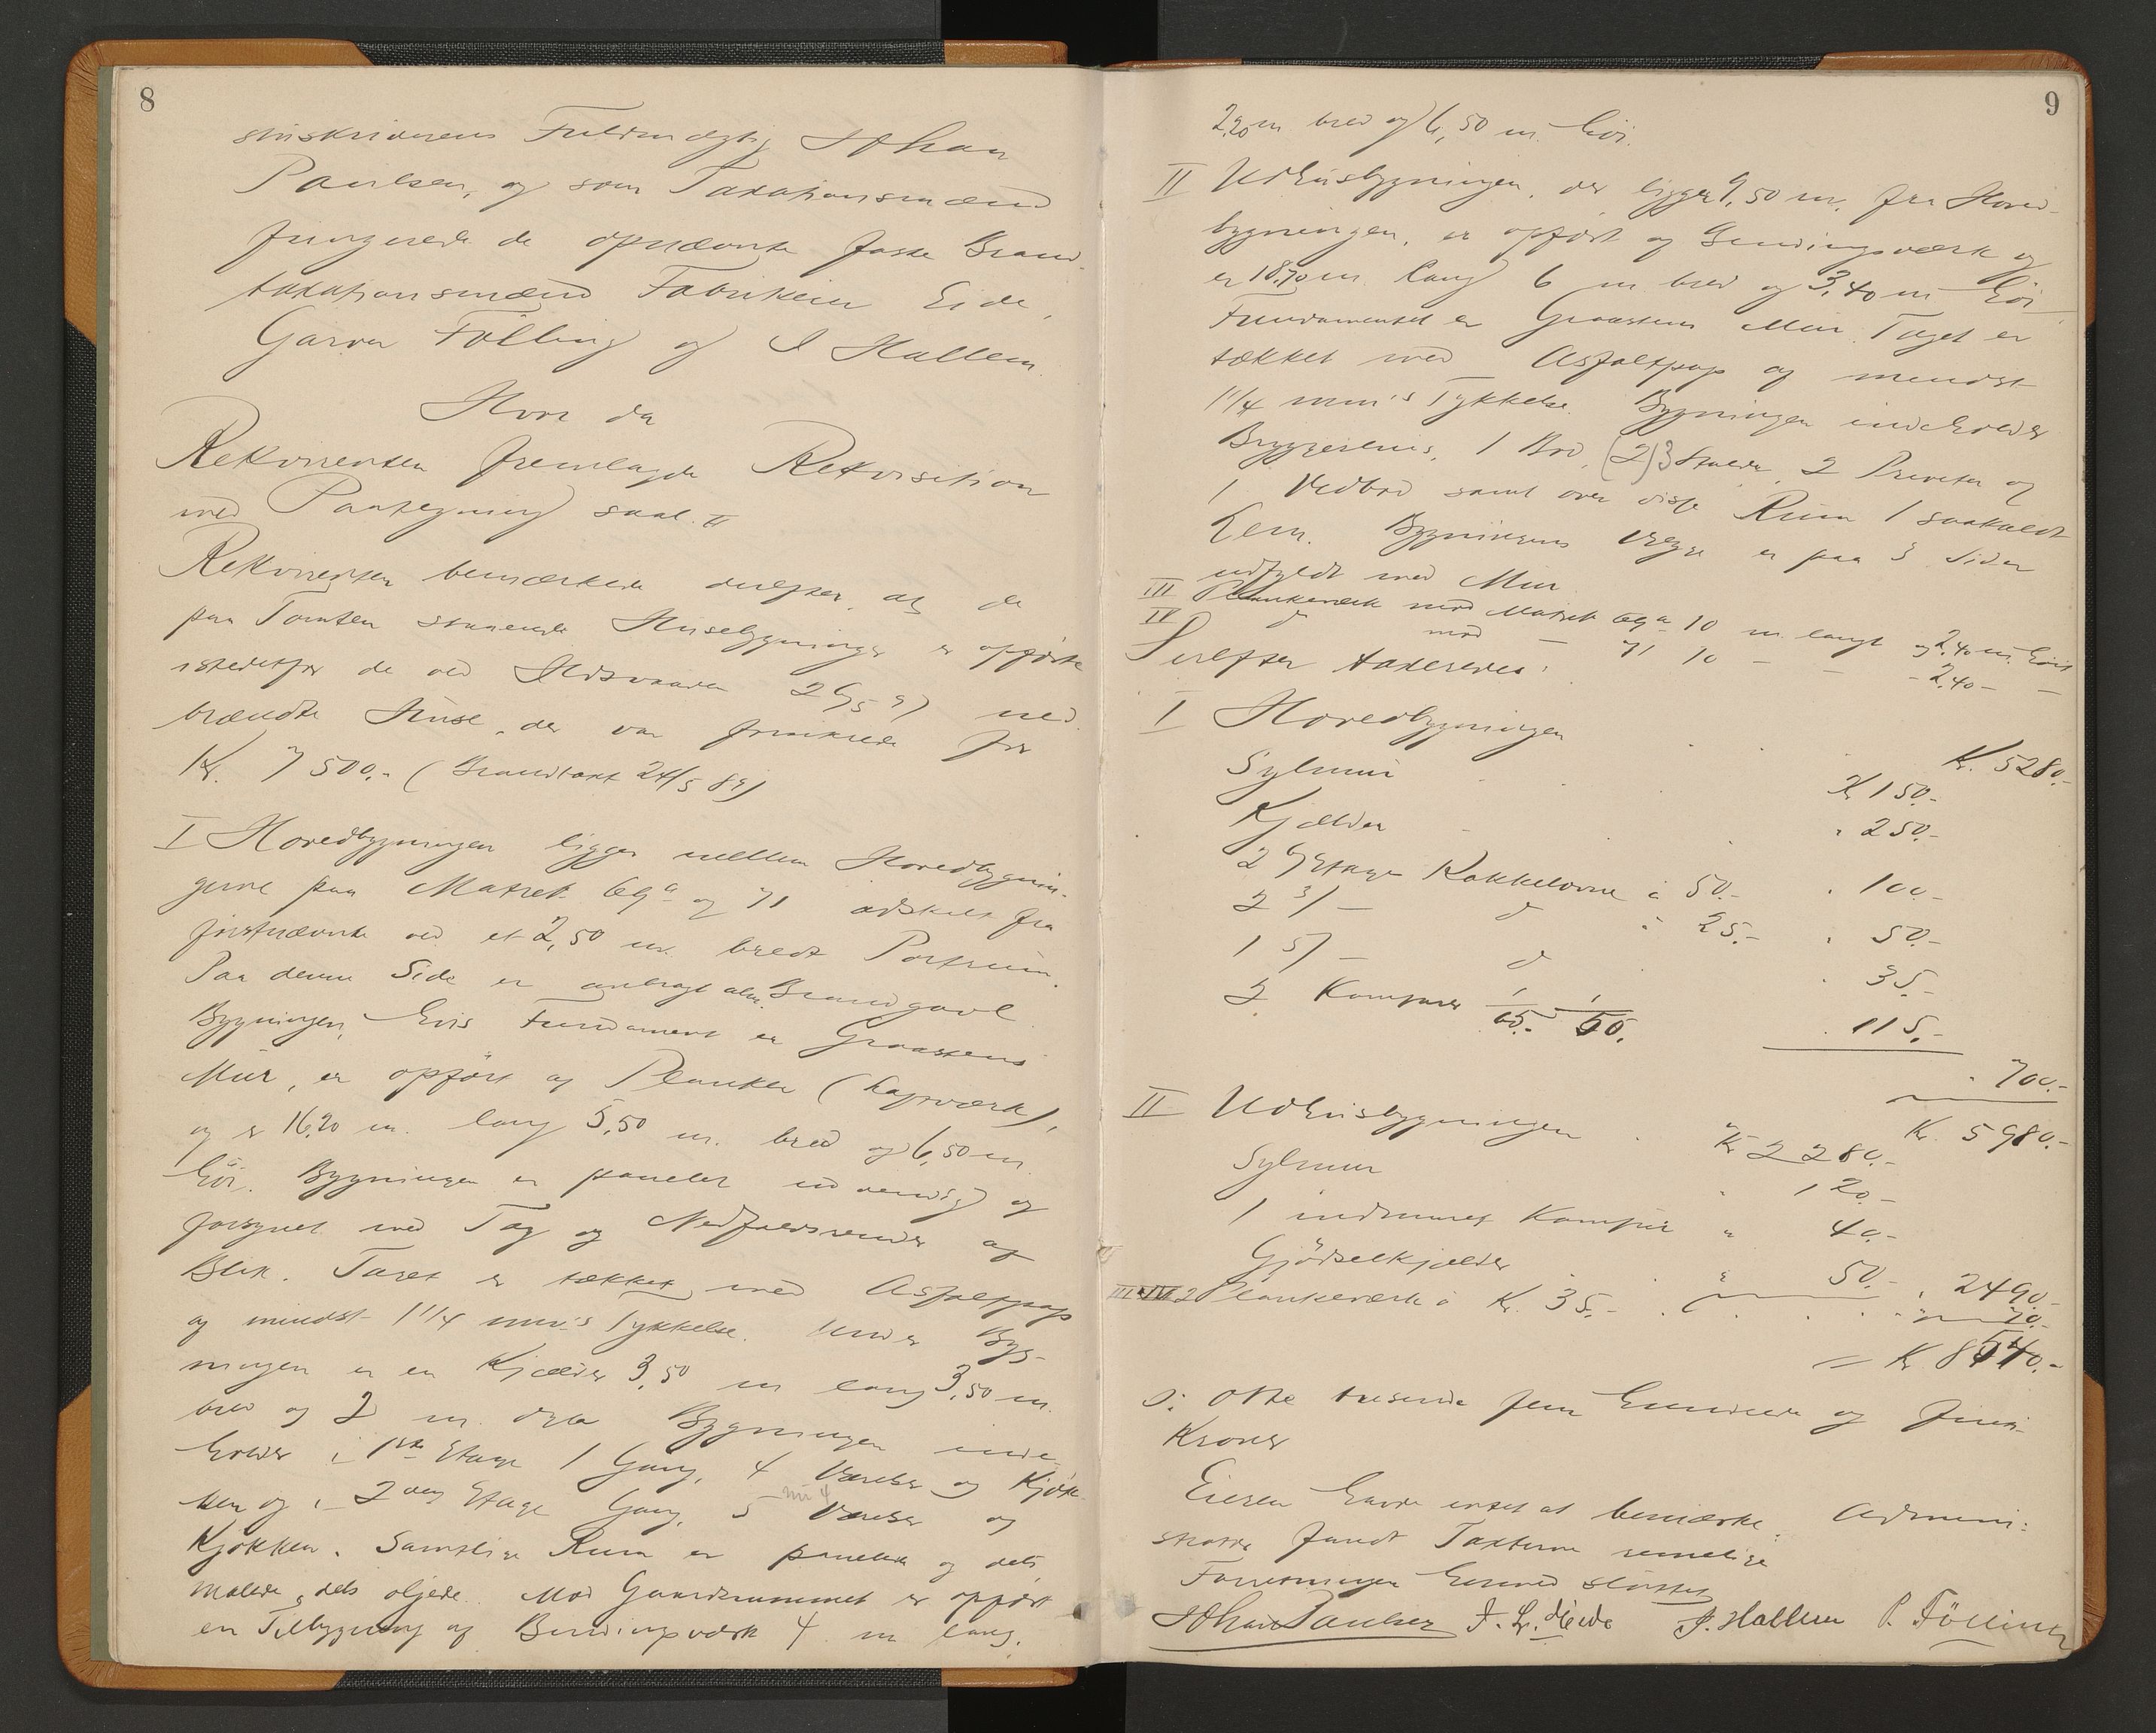 8
sinskriverens Fuldmægtig Johan
Paulsen, og som Taxationsmænd
fungerede de opnævnte faste Brand-
taxationsmænd Fabrikeier Eide,
Garver Fölling og I Hallem.
Hvor da
Rekvirenten fremlagde Rekvisition
med Paategning saal.
Rekvirenten bemærkede derefter, at de
paa Tomten staaende Husebygninger er opförte
istedetfor de ved Ildsvaaden 26/5 97 ned-
brændte Huse, der var forsikrede for
Kr. 7500.- (Brandtaxt 24/5 89)
I Hovedbygningen ligger mellem Hovedbygnin-
gerne paa Matrik 69a og 71 adskilt fra
förstnævnte ved et 2,50 m. bredt Portrum.
Paa denne Side er anbragt alm. Brandgavl
Bygningen, hvis Fundament er Graastens
Mur, er opfört af Planker (Lafteværk),
og er 16,20 m. lang 5,50 m. bred og 6,50 m.
höi. Bygningen er panelet udvendig og
forsynet med Tag og Nedfaldsrender af
Blik. Taget er tækket med Asfaltpap
og mindst 1 1/4 mm's Tykkelse. Under Byg-
ningen er en Kjælder 3,50 m lang 3,50 m.
bred og 2 m. dyb Bygningen inde-
holder i 1ste Etage 1 Gang, 4 Værelser og Kjök-
ken og i 2den Etage Gang, 5 Værelser og
nu 4
Kjökken. Samtlige Rum er panelede og dels
malede, dels oljede. Mod Gaardsrummet er opfört
en Tilbygning af Bindingsværk 4 m lang,
9
2,20 m bred og 6,50 m. höi.
II Udhusbygningen, der ligger 9,50 m. fra Hoved-
bygningen, er opfört af Bindingsværk og
er 18,70 m. lang 6 m bred og 3,40 m höi
Fundamentet er Graastens Mur. Taget er
tækket med Asfaltpap af mindst
1 1/4 mm's Tykkelse. Bygningen indeholder
Bryggerhus, 1 Bod, (2) 3 Stalde, 2 Priveter og
1 Vedbod samt over disse Rum 1 saakaldt
Lem. Bygningens Vægge er paa 3 Sider
udfyldt med Mur
III Plankeværk mod Matrik 69a 10 m langt og 2,40 m. höit
IV d mod — 71 10 — — - 2,40 — —
Derefter taxeredes:
I Hovedbygningen Kr. 5280.-
Sylmur Kr 150.-
Kjælder " 250.-
2 6/Etages Kakkelovne à 50.- " 100.-
2 3/ — d " 25.- " 50.-
1 5/ — d " 35.-
2 Komfurer 1/65.- 1/50. " 115.-
" 700.-
Kr. 5980.-
II Udhusbygningen Kr 2280.-
Sylmur " 120.-
1 indmuret Komfur " 40.-
Gjödselkjælder " 50.- " 2490.-
III & IV 2 Plankeværk à Kr. 35.- " 70.-
= Kr 8540.-
o: Otte tusinde fem hundrede og firti
Kroner
Eieren havde intet at bemærke. Admini-
strator fandt Taxterne rimelige
Forretningen hermed sluttet
Johan Paulsen J. L. Eide J. Hallem P. Fölling